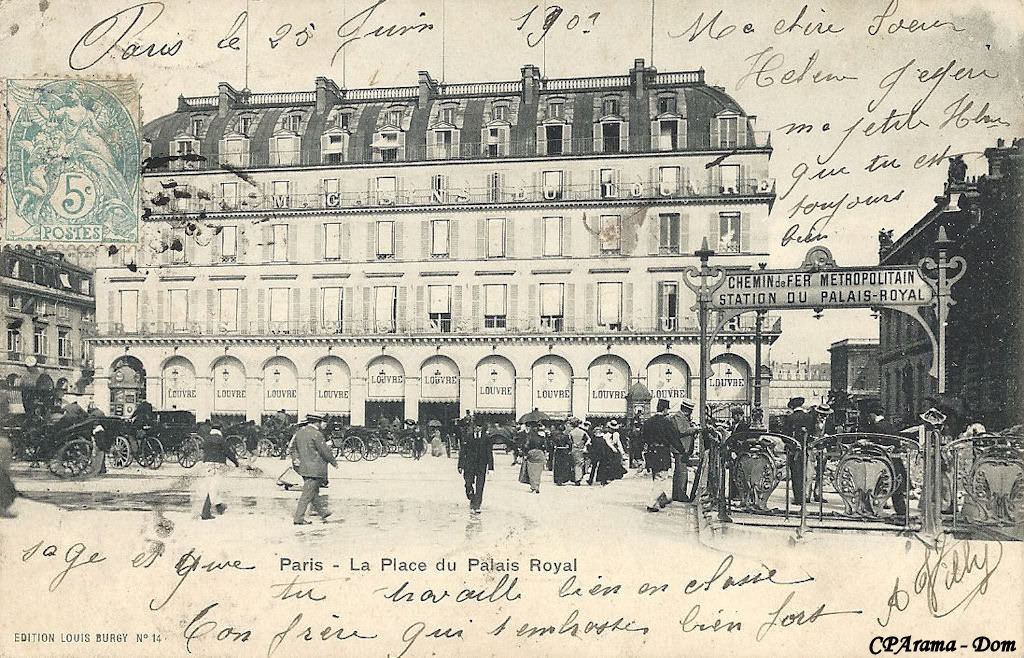 Paris le 25 Juin 190?
Ma chère Soeur
Helene J'espère
ma petite Hln
que tu est
toujours
bien
5c
POSTES
CHEMIN de FER METROPOLITAIN
STATION DU PALAIS-ROYAL
LOUVRE LOUVRE LOUVRE LOUVRE LOUVRE LOUVRE LOUVRE LOUVRE LOUVRE LOUVRE LOUVRE
sage et que
Paris - La Place du Palais Royal
tu travaille bien en classe
Ton frère qui t'embrasse bien fort
EDITION LOUIS BURGY Nº 14
CPArama - Dom